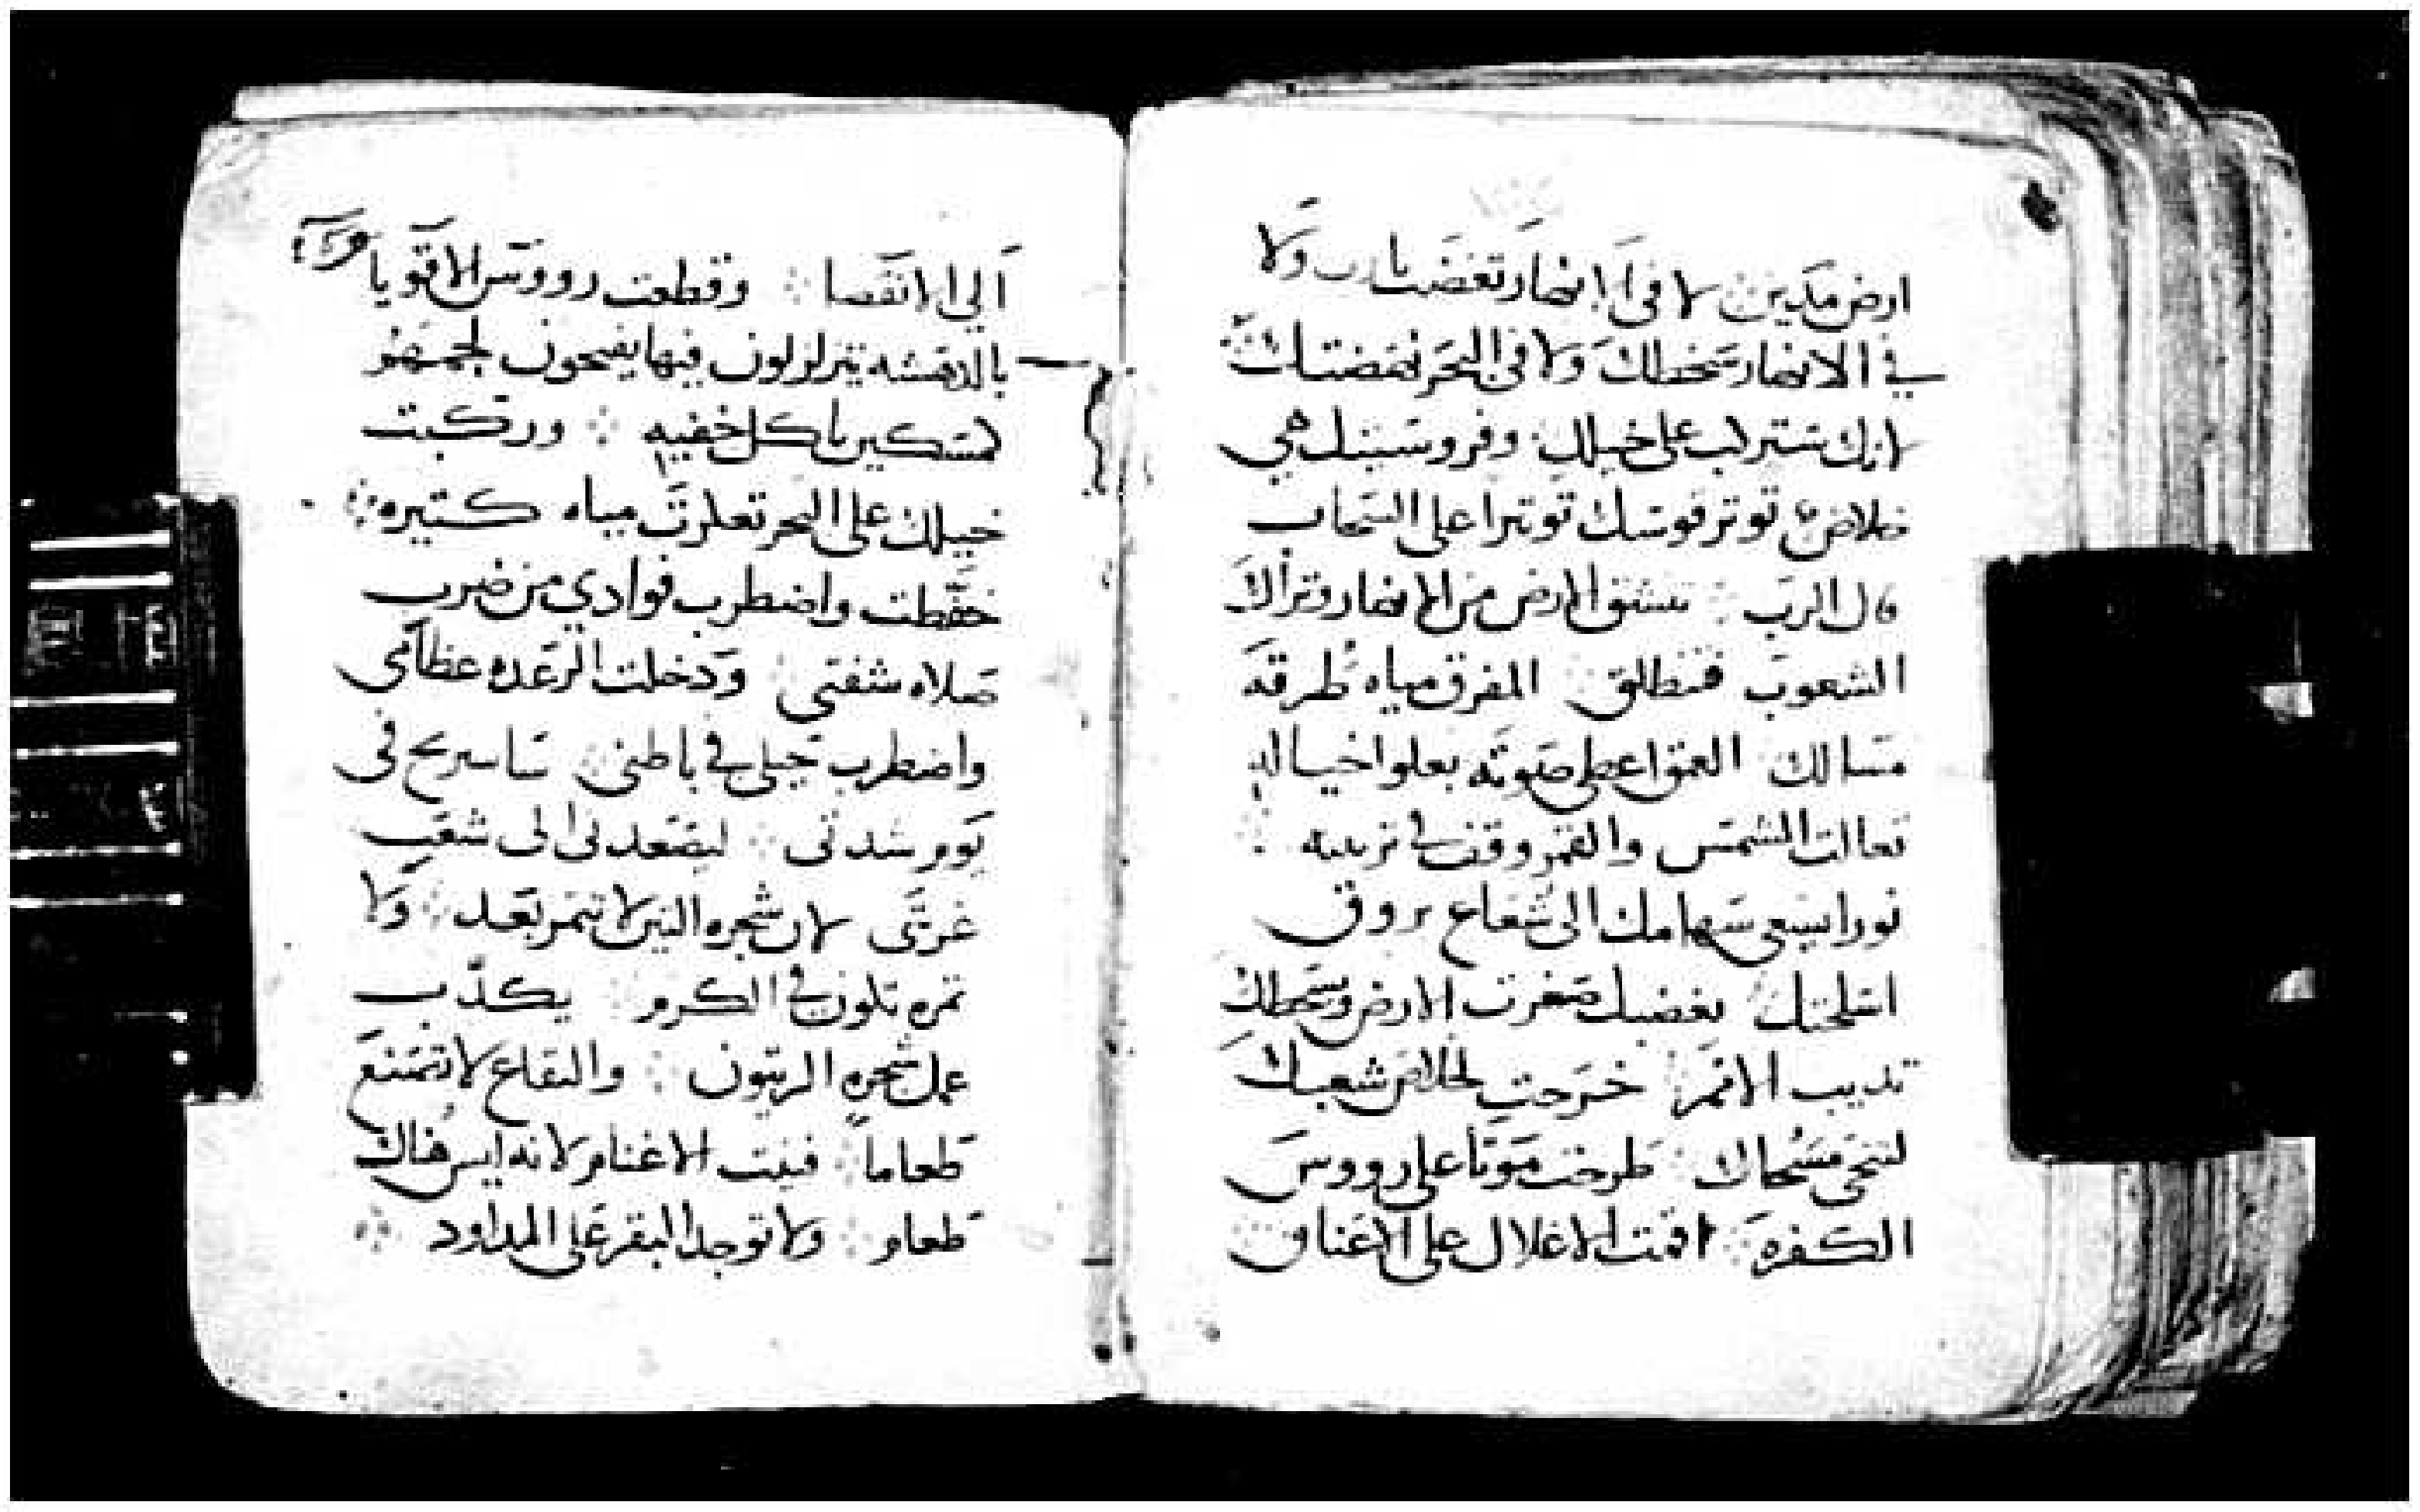 ارض مدين لا في الانهار تغضب يا رب ولا
في الانهار سخطك ولا في البحر نهضتك
لانك ستركب على خيلك وفروسيتك هي
خلاص توتر قوسك توترا على السحاب
قال الرب تتشقق الارض من الانهار وتراك
الشعوب فتطلق المفرق مياه طرقه
مسالك العمق اعطى صوته بعلو اخياله
تعالت الشمس والقمر وقف في ترتيبه
نورا يسعى سهامك الى شعاع بروق
اسلحتك بغضبك صغرت الارض وبسخطك
تديب الامم خرجت لخلاص شعبك
لتنجي مسحاك طرحت موتا على رووس
الكفره اقمت الاغلال على الاعناق
الي الانقضا وقطعت رووس الاقويا
بالدهشه يتزلزلون فيها يفتحون لجمهم
لمسكين ياكل خفيه وركبت
خيلك على البحر تعكرت مياه كتيره
خفظت واضطرب فوادي من ضرب
صلاه شفتي ودخلت الرعده عظامي
واضطرب حيلي في باطني ساستريح في
يوم شدتي ليصعدني الى شعب
غربتي لان شجره التين لا تتمر بعد ولا
تمره تكون في الكرم يكدب
عمل شجره الزيتون والبقاع لا تصنع
طعاما فنيت الاغنام لانه ليس هناك
طعام ولا توجد البقر على المداود